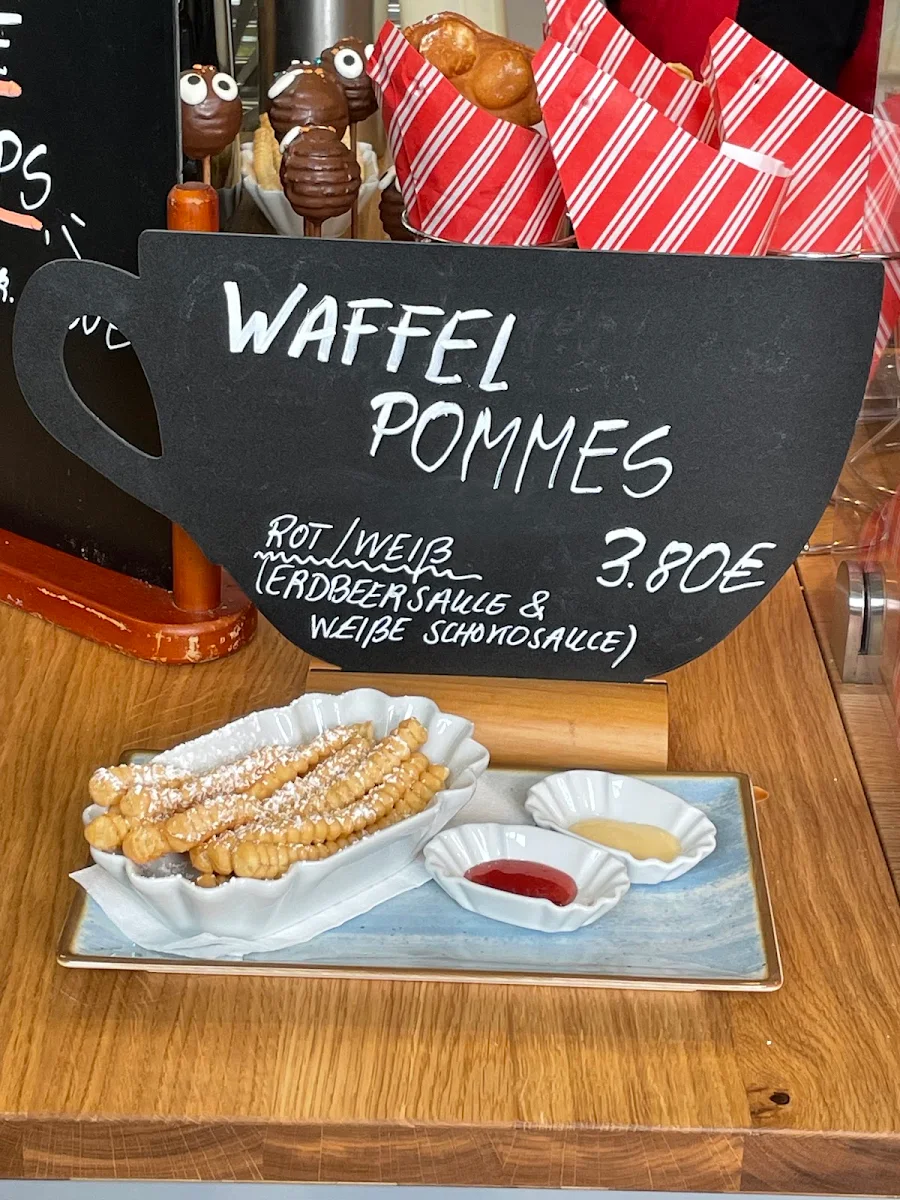 WAFFEL
POMMES
ROT/WEIß
3.80€
(ERDBEERSAUCE &
WEIßE SCHOKOSAUCE)